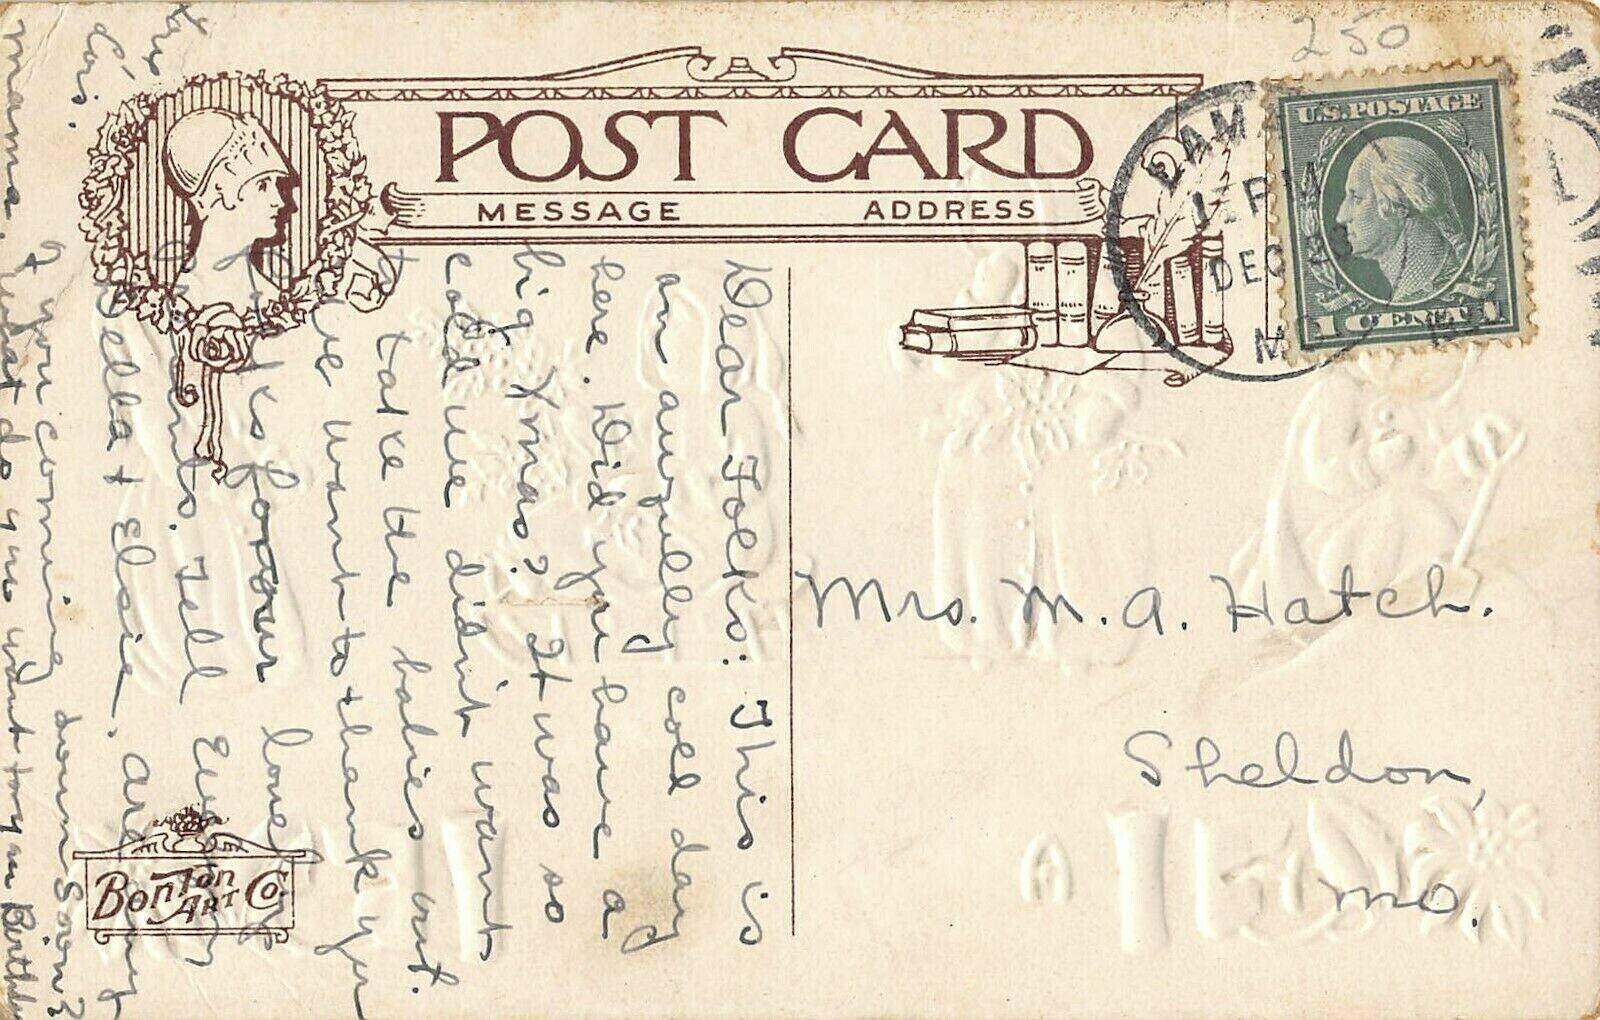 250
POST CARD
MESSAGE
ADDRESS
U.S. POSTAGE
1 CENT 1
DEC 23
MO
Dear Folks: This is
an awfully cold day
here. Did you have a
big Xmas? It was so
cold we didn't want
to take the babies out.
We want to thank you
folks for our lovely
presents. Tell Every
Della & Elsie, are any
of you coming down soon?
mama, what do you want for your Birthday
Mrs. M. A. Hatch.
Sheldon,
Mo.
BonTon
Art Co.